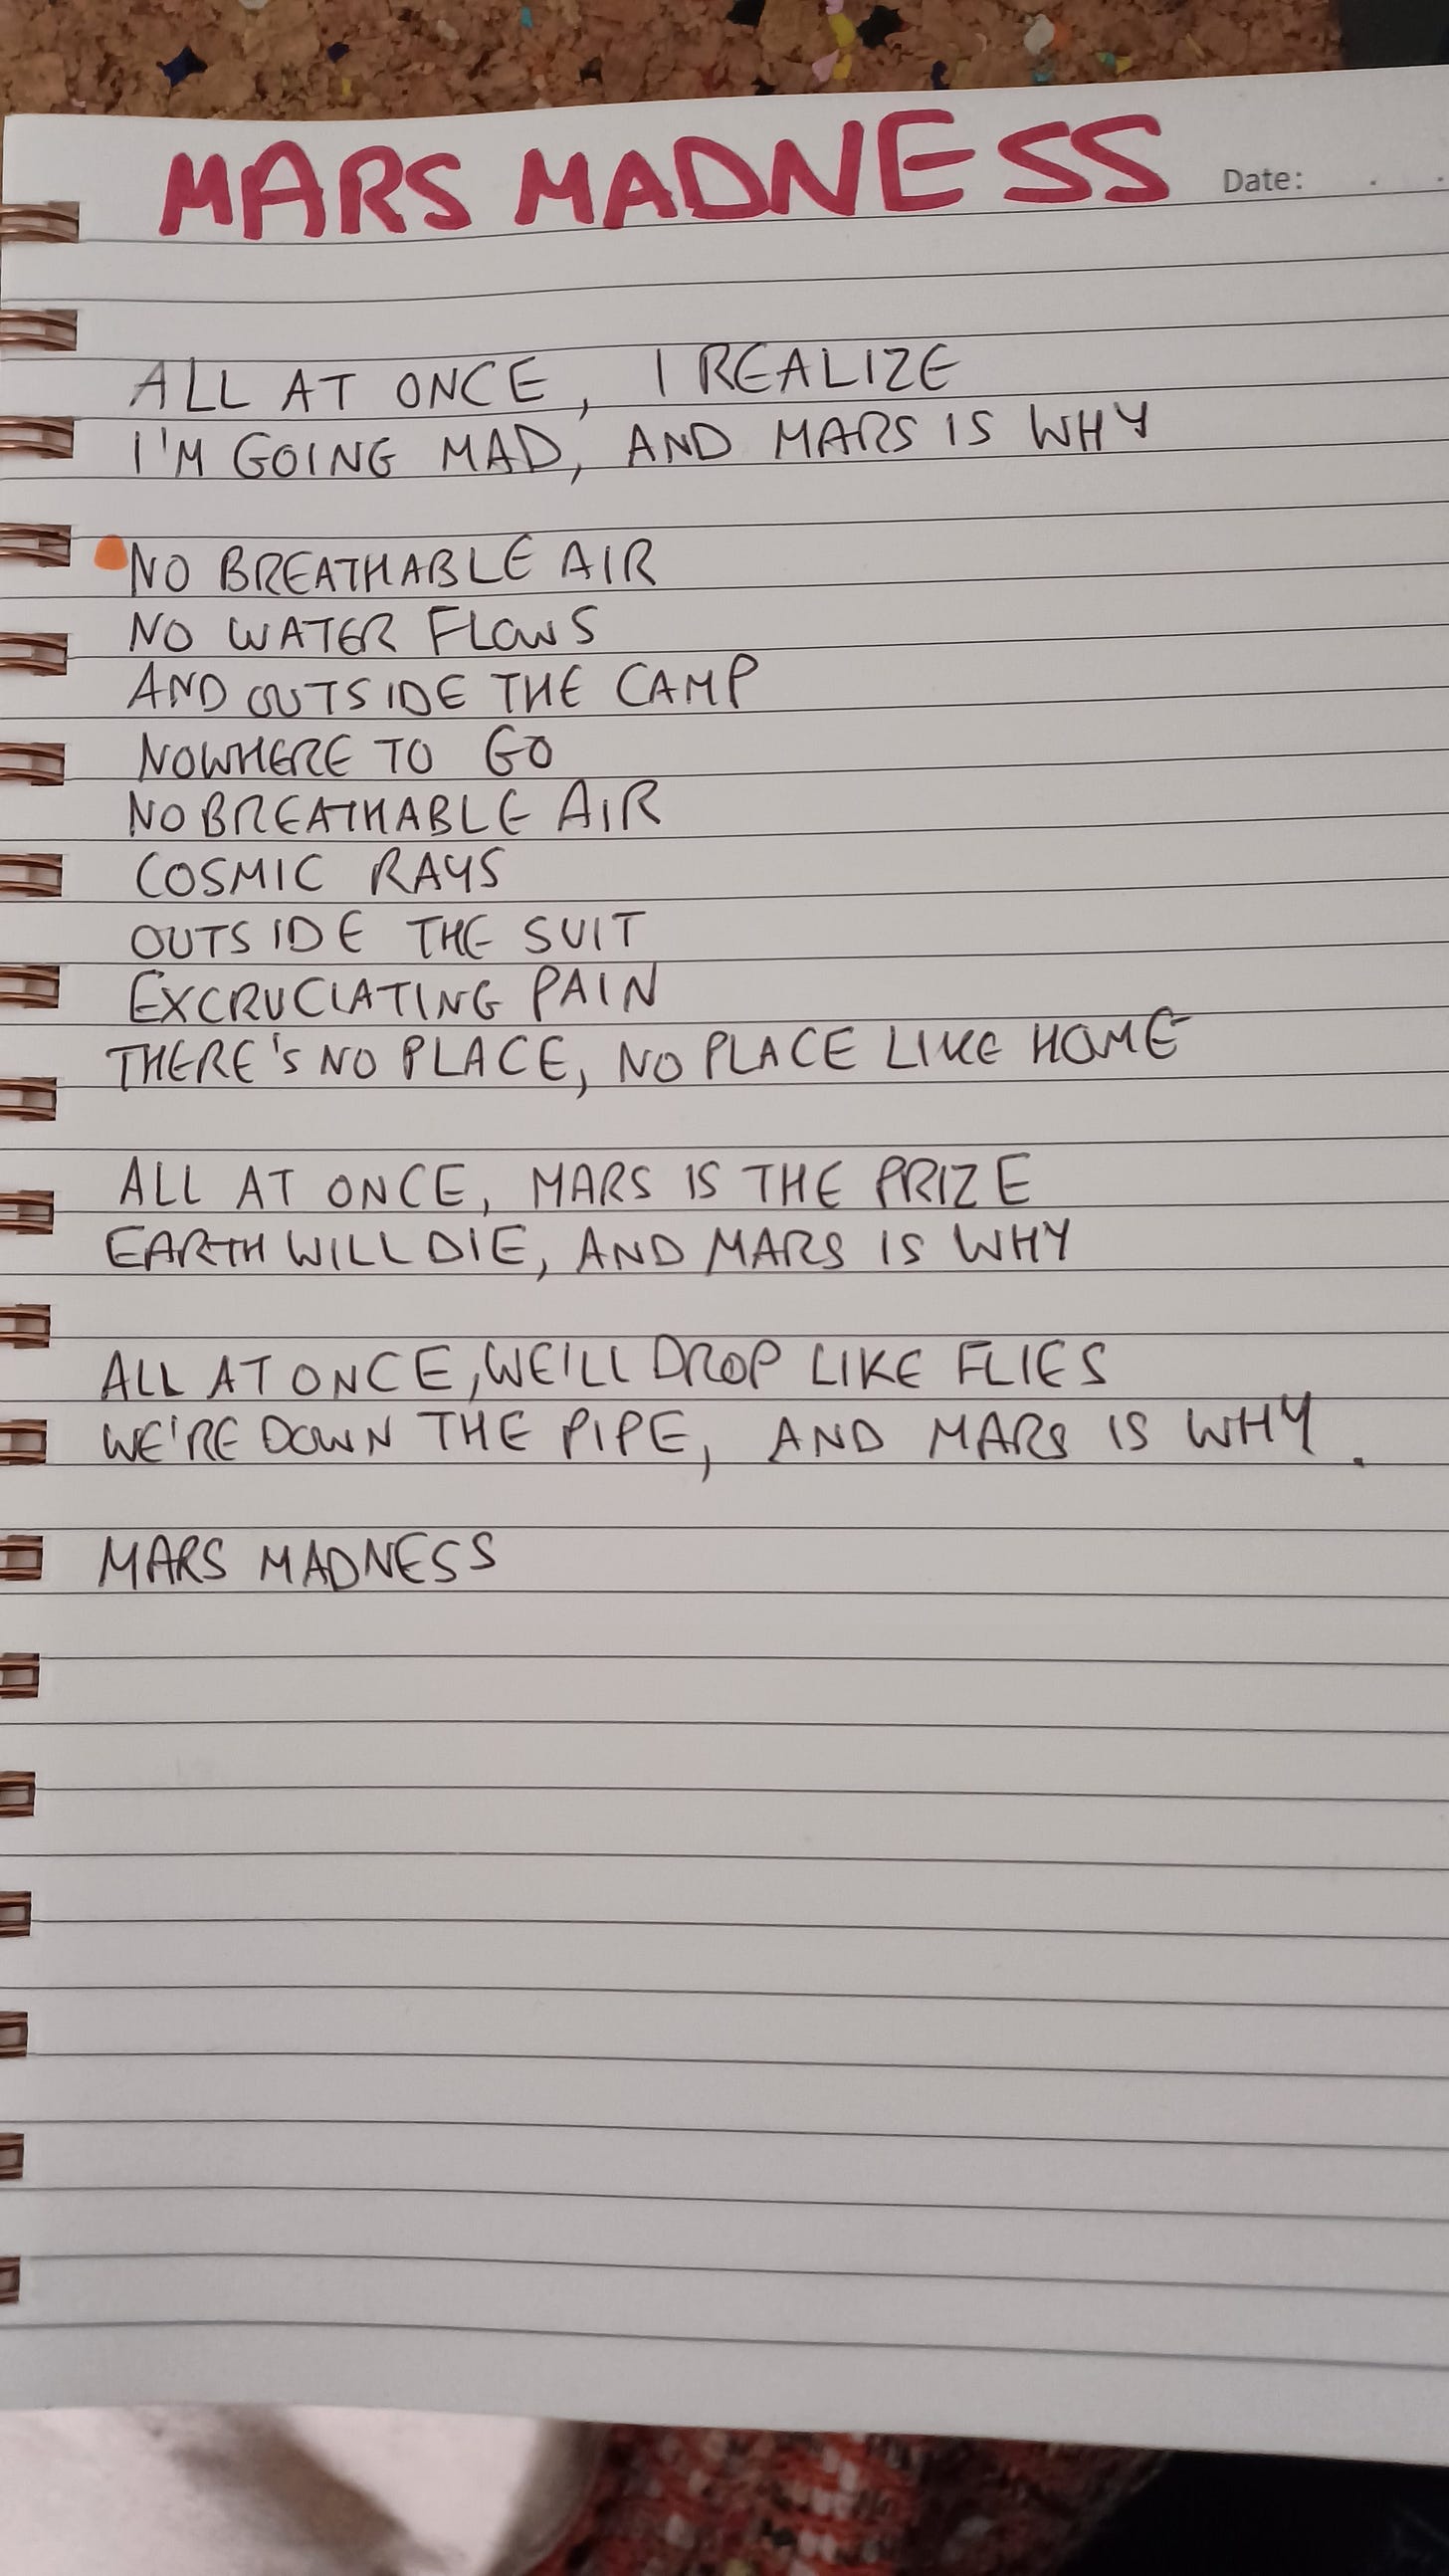 MARS MADNESS Date: . .
ALL AT ONCE, I REALIZE
I'M GOING MAD, AND MARS IS WHY
NO BREATHABLE AIR
NO WATER FLOWS
AND OUTSIDE THE CAMP
NOWHERE TO GO
NO BREATHABLE AIR
COSMIC RAYS
OUTSIDE THE SUIT
EXCRUCIATING PAIN
THERE'S NO PLACE, NO PLACE LIKE HOME
ALL AT ONCE, MARS IS THE PRIZE
EARTH WILL DIE, AND MARS IS WHY
ALL AT ONCE, WE'LL DROP LIKE FLIES
WE'RE DOWN THE PIPE, AND MARS IS WHY.
MARS MADNESS